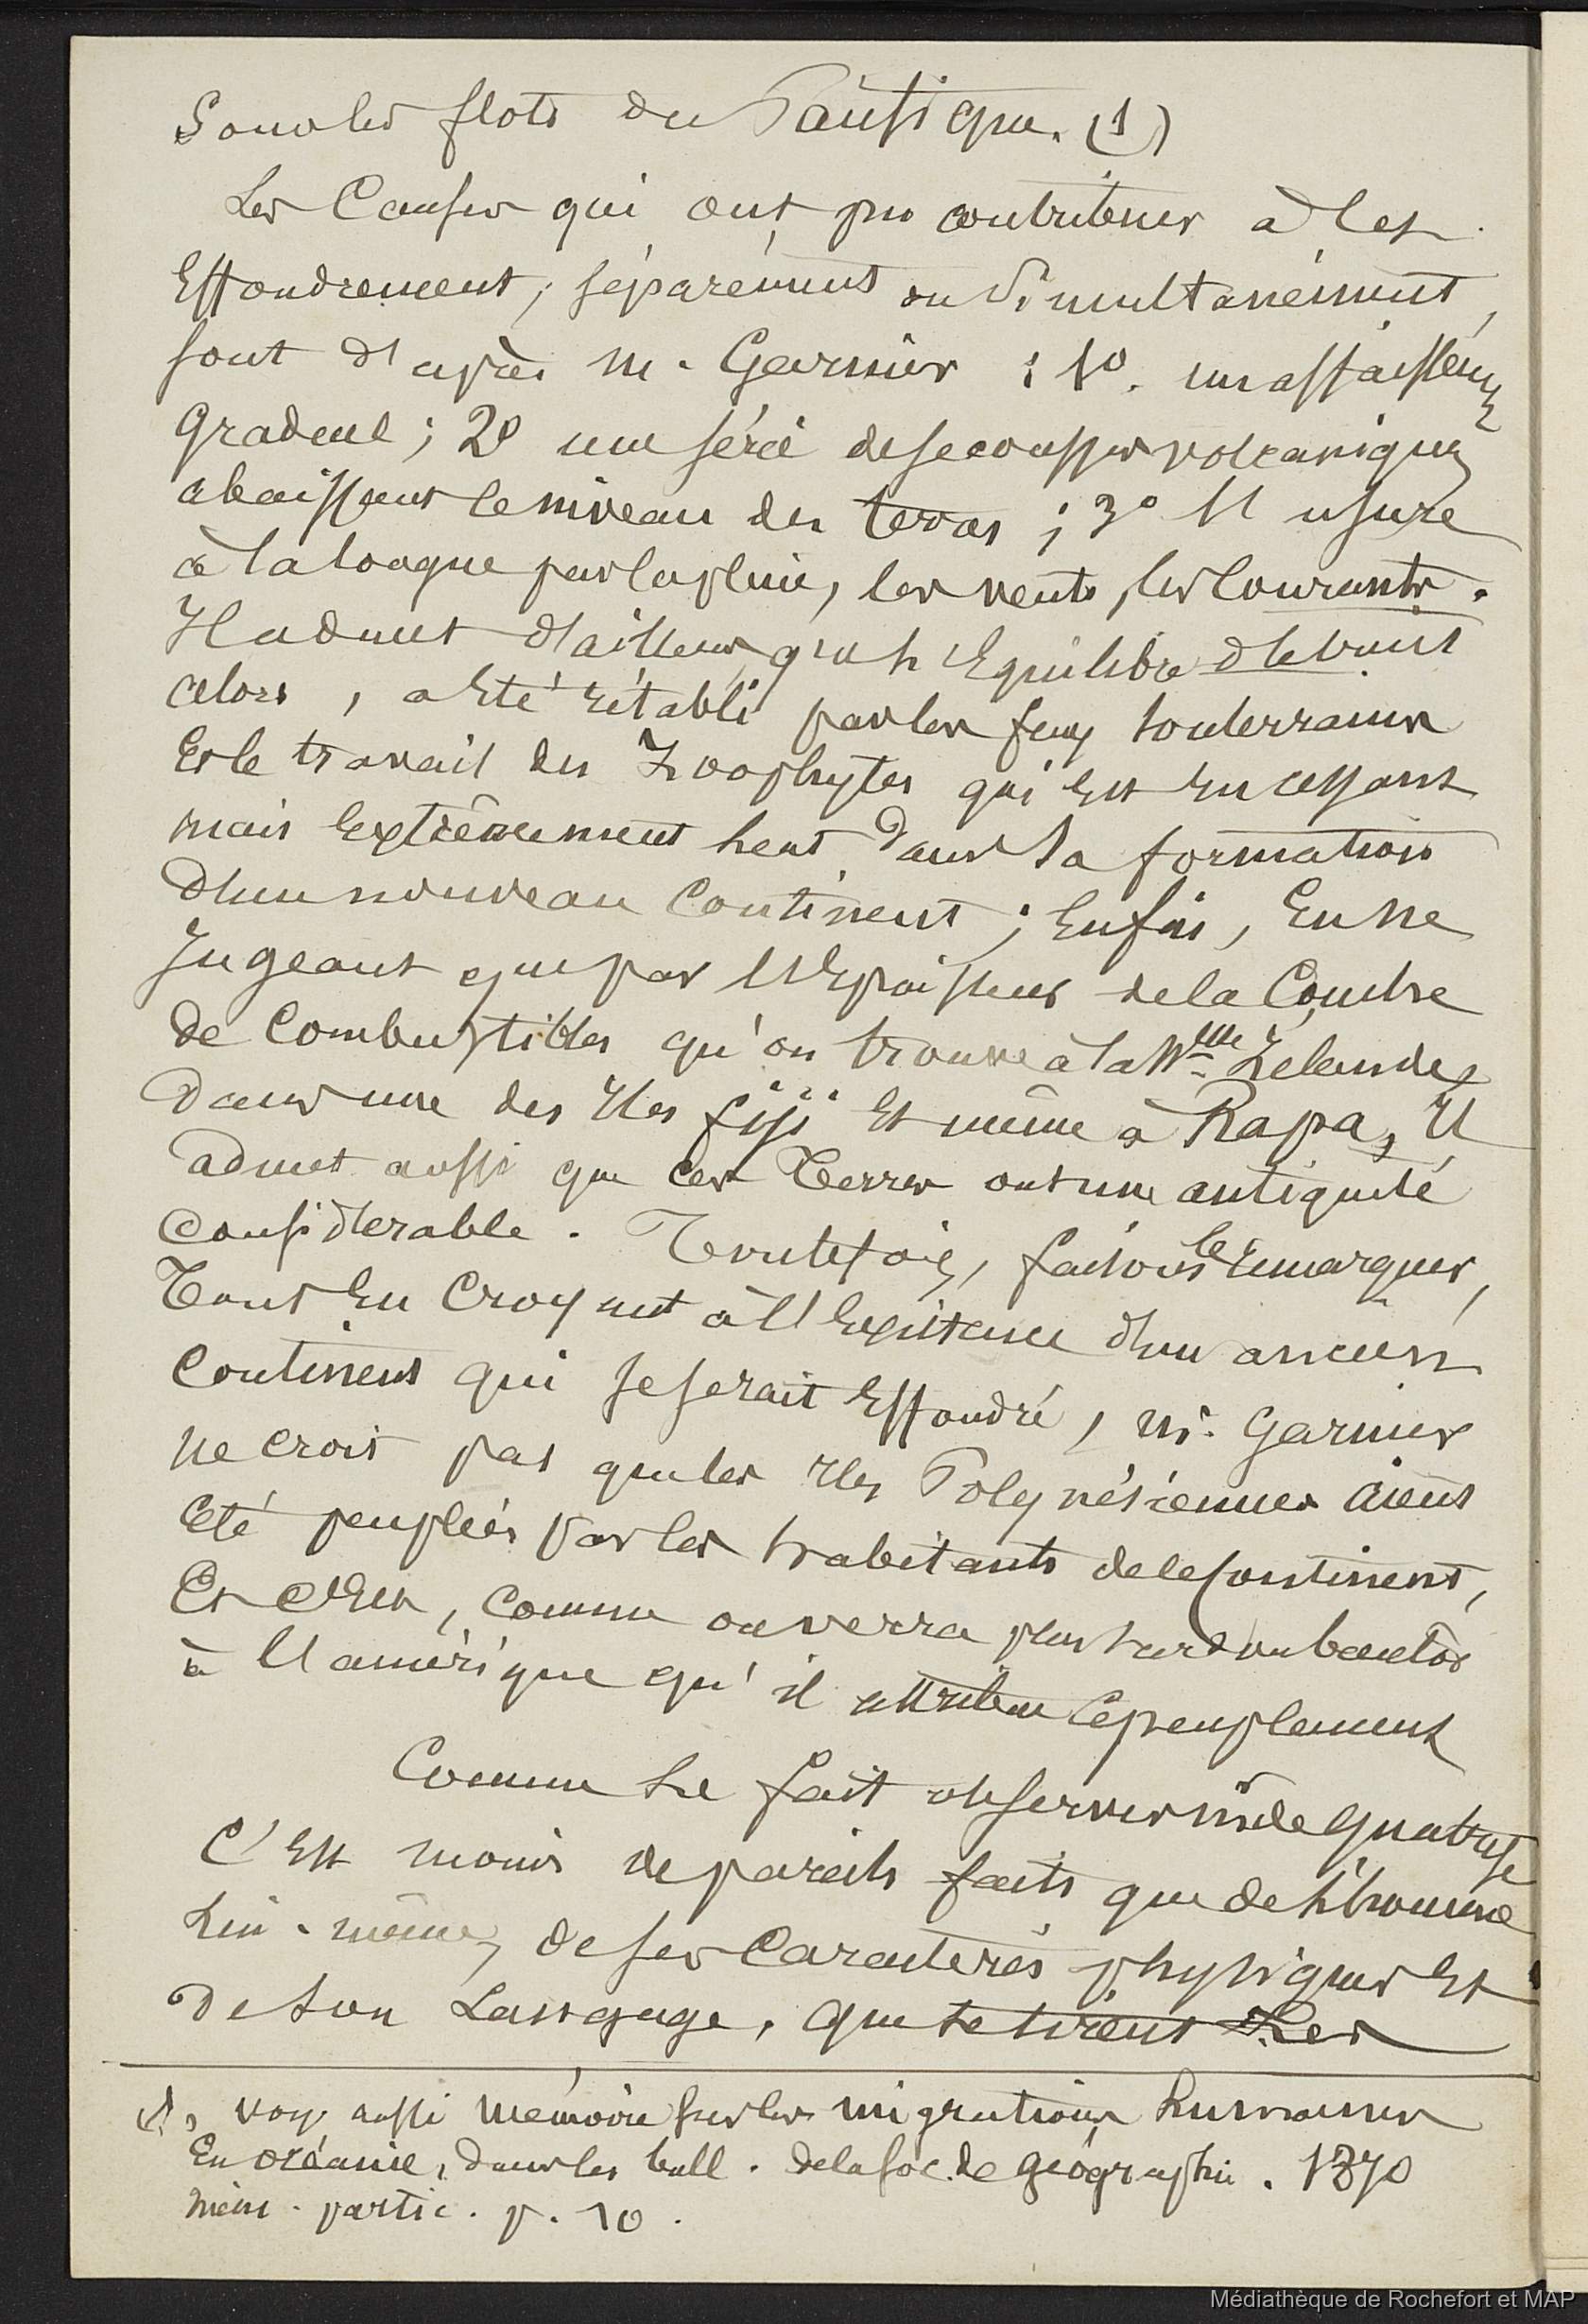 Sous les flots du Pacifique. (1)
Les Causes qui ont pu contribuer à cet
Effondrement, séparément ou Simultanément,
sont d'après M. Garnier : 1º. un affaissement
Graduel ; 2º une série de secousses volcaniques
abaissant le niveau des terres ; 3º l'usure
à la longue par la pluie, les vents, les Courants.
Il admet d'ailleurs, qu'un Equilibre détruit
alors, a été rétabli par les feux souterrains
Et le travail des Zoophytes qui est incessant
mais Extrêmement lent dans la formation
d'un nouveau Continent ; Enfin, En ne
Jugeant que par l'Epaisseur de la Couche
de Combustibles qu'on trouve à la Nlle Zélande,
dans une des Iles fiji et même à Rapa, Il
admet aussi que ces Terres ont une antiquité
Considérable. Toutefois, faisons le remarquer,
Tout En Croyant à l'Existence d'un ancien
Continent qui se serait Effondré, M. Garnier
ne croit pas que les Iles Polynésiennes aient
été peuplées par les habitants de le Continent,
Et c'est, comme on verra plus tard
à l'amérique qu'il attribue ce peuplement
Comme le fait observer M. de Quatrefages
C'est moins de pareils faits que de l'homme
lui-même, de ses Caractères physiques Et
de son Langage, que se tirent Les
(1), voy. aussi Mémoire sur les migrations humaines
En océanie, dans les bull. de la soc. de géographie. 1870
mém. partic. p. 10.
Médiathèque de Rochefort et MAP